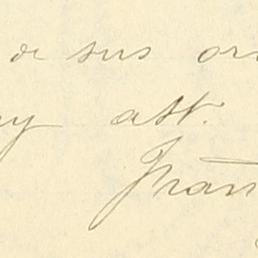 de sus or
y att.
Fran